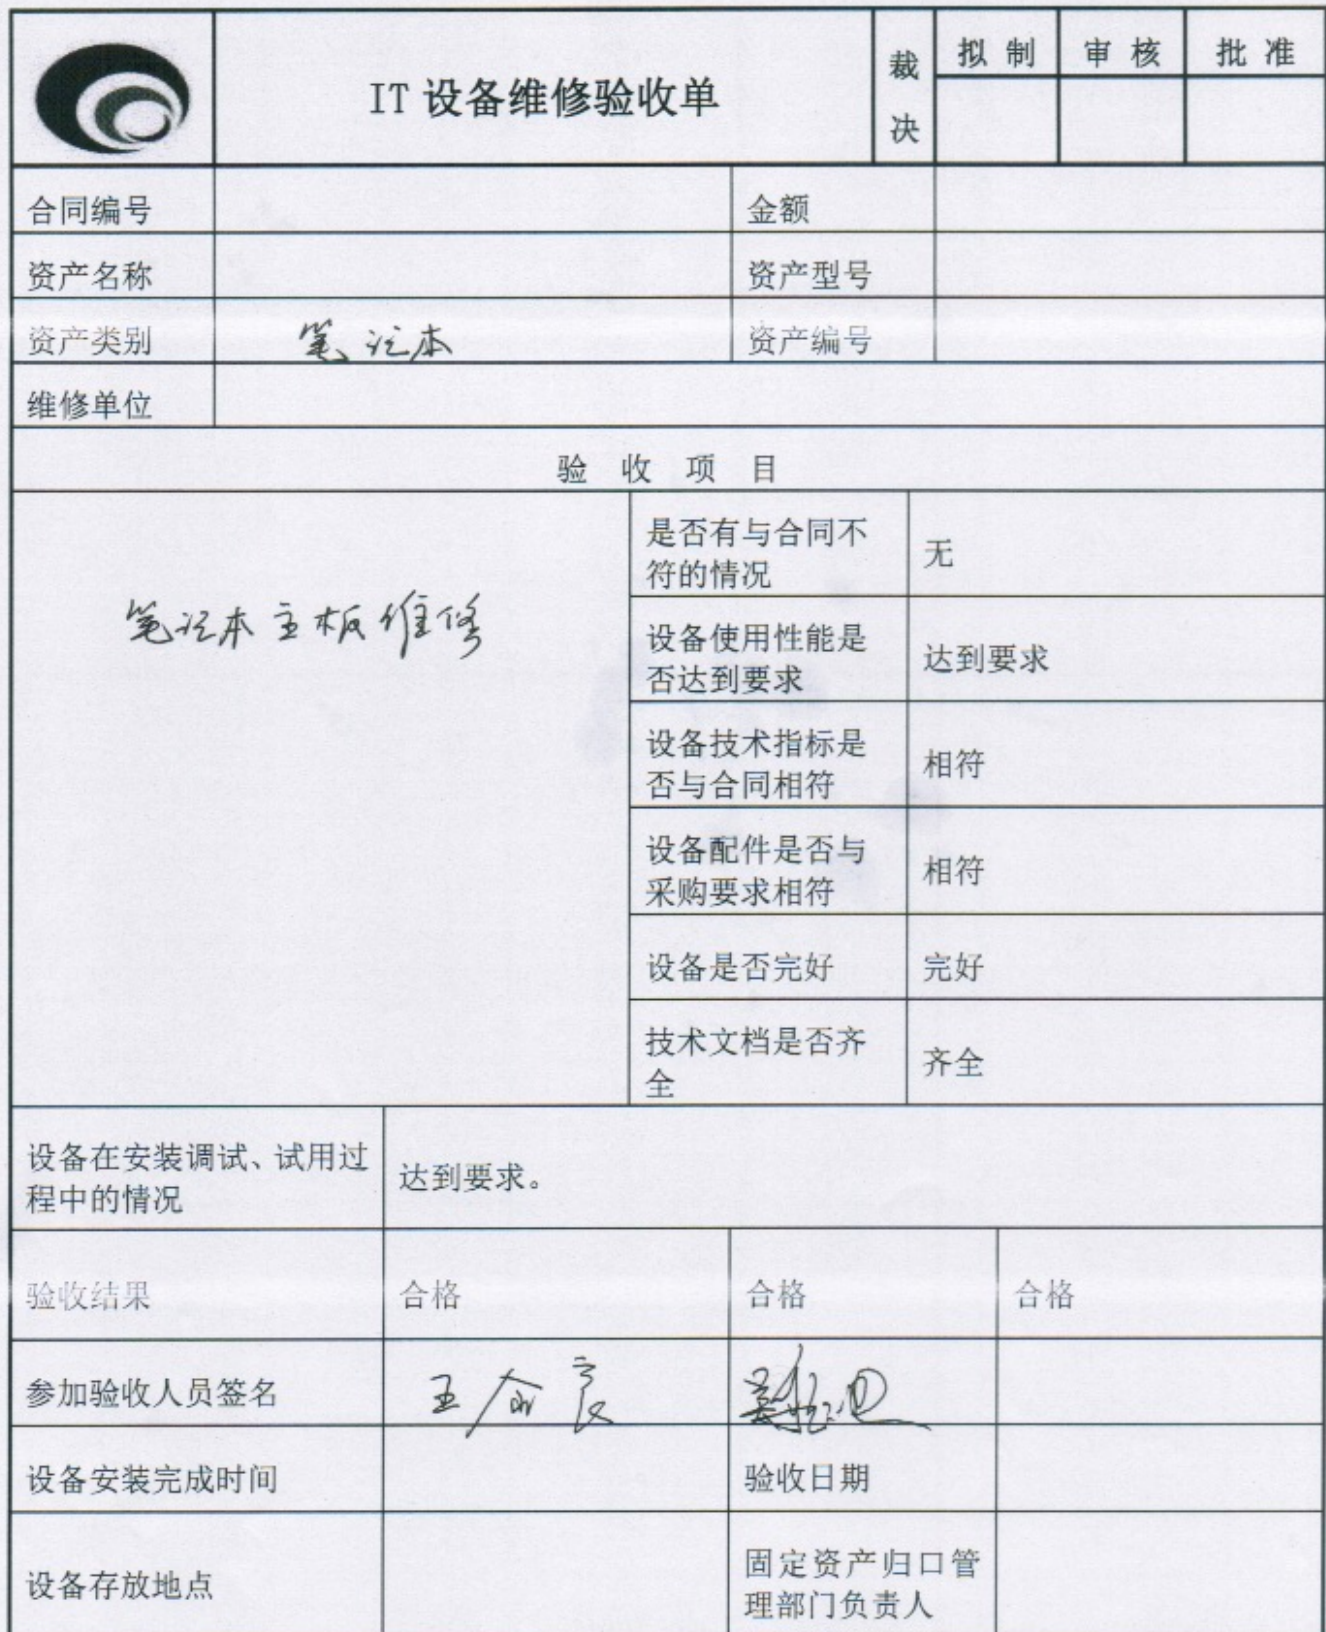 IT 设备维修验收单
裁决
拟 制
审 核
批 准
合同编号
金额
资产名称
资产型号
资产类别
笔记本
资产编号
维修单位
验 收 项 目
笔记本主板维修
是否有与合同不
符的情况
无
设备使用性能是
否达到要求
达到要求
设备技术指标是
否与合同相符
相符
设备配件是否与
采购要求相符
相符
设备是否完好
完好
技术文档是否齐
全
齐全
设备在安装调试、试用过
程中的情况
达到要求。
验收结果
合格
合格
合格
参加验收人员签名
设备安装完成时间
验收日期
设备存放地点
固定资产归口管
理部门负责人